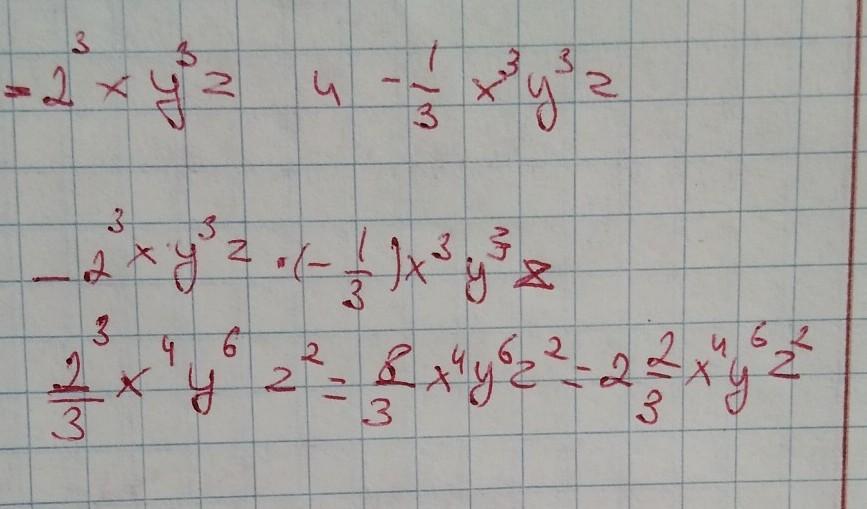 -2³xy³z и -1/3 x³y³z
-2³xy³z · (-1/3)x³y³z
2³/3 x⁴y⁶ z² = 8/3 x⁴y⁶z² = 2 2/3 x⁴y⁶z²